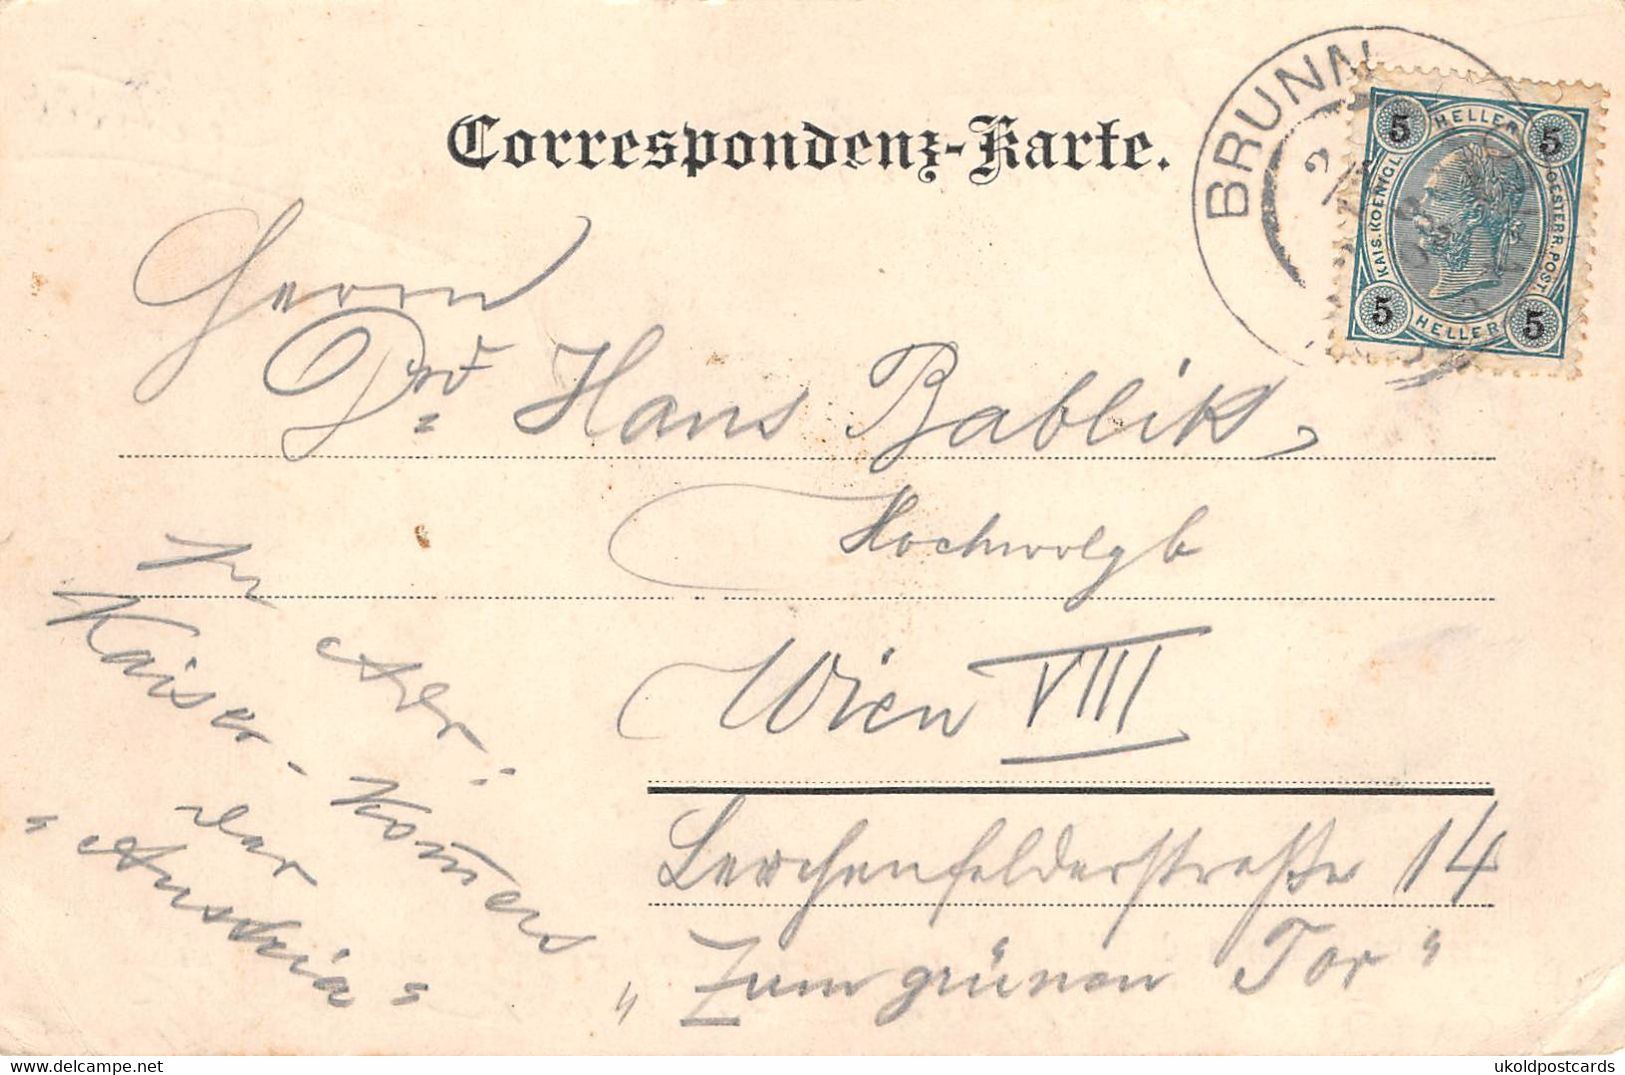 Correspondenz-Karte.
BRUNN
5 HELLER 5
KAIS.KOENIGL.
OESTERR.POST.
5 HELLER 5
Herrn
Hans Bablik,
Hochwolgb
Wien VIII
Lerchenfelderstraße 14
"Zum grünen Tor"
Kaiser-
der
"Austria"
www.delcampe.net
ukoldpostcards